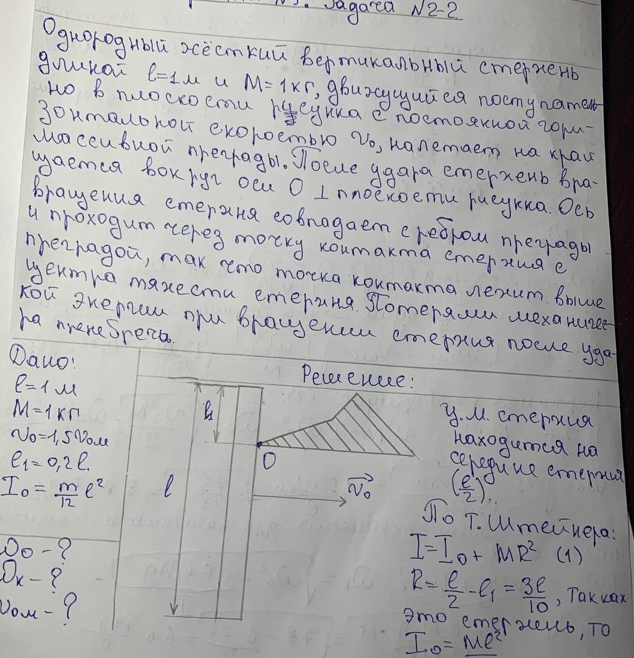 №3. Задача №2-2
Однородный жёсткий вертикальный стержень
длиной l=1м и M=1кг, движущийся поступатель-
но в плоскости рисунка с постоянной гори-
зонтальной скоростью v₀, налетает на край
массивной преграды. После удара стержень вра-
щается вокруг оси O ⊥ плоскости рисунка. Ось
вращения стержня совпадает с ребром преграды
и проходит через точку контакта стержня с
преградой, так что точка контакта лежит выше
центра тяжести стержня. Потерями механичес-
кой энергии при вращении стержня после уда-
ра пренебречь.
Дано:
l=1м
M=1кг
v₀=1,5v₀м
l₁=0,2l.
I₀=m/12 l²
ω₀-?
ωк-?
v₀м-?
Решение:
l₁
l
O
v₀
Ц.М. стержня
находится на
середине стержня
(l/2).
По т. Штейнера:
I=I₀+MR² (1)
R=l/2-l₁=3l/10, так как
это стержень, то
I₀=Ml²